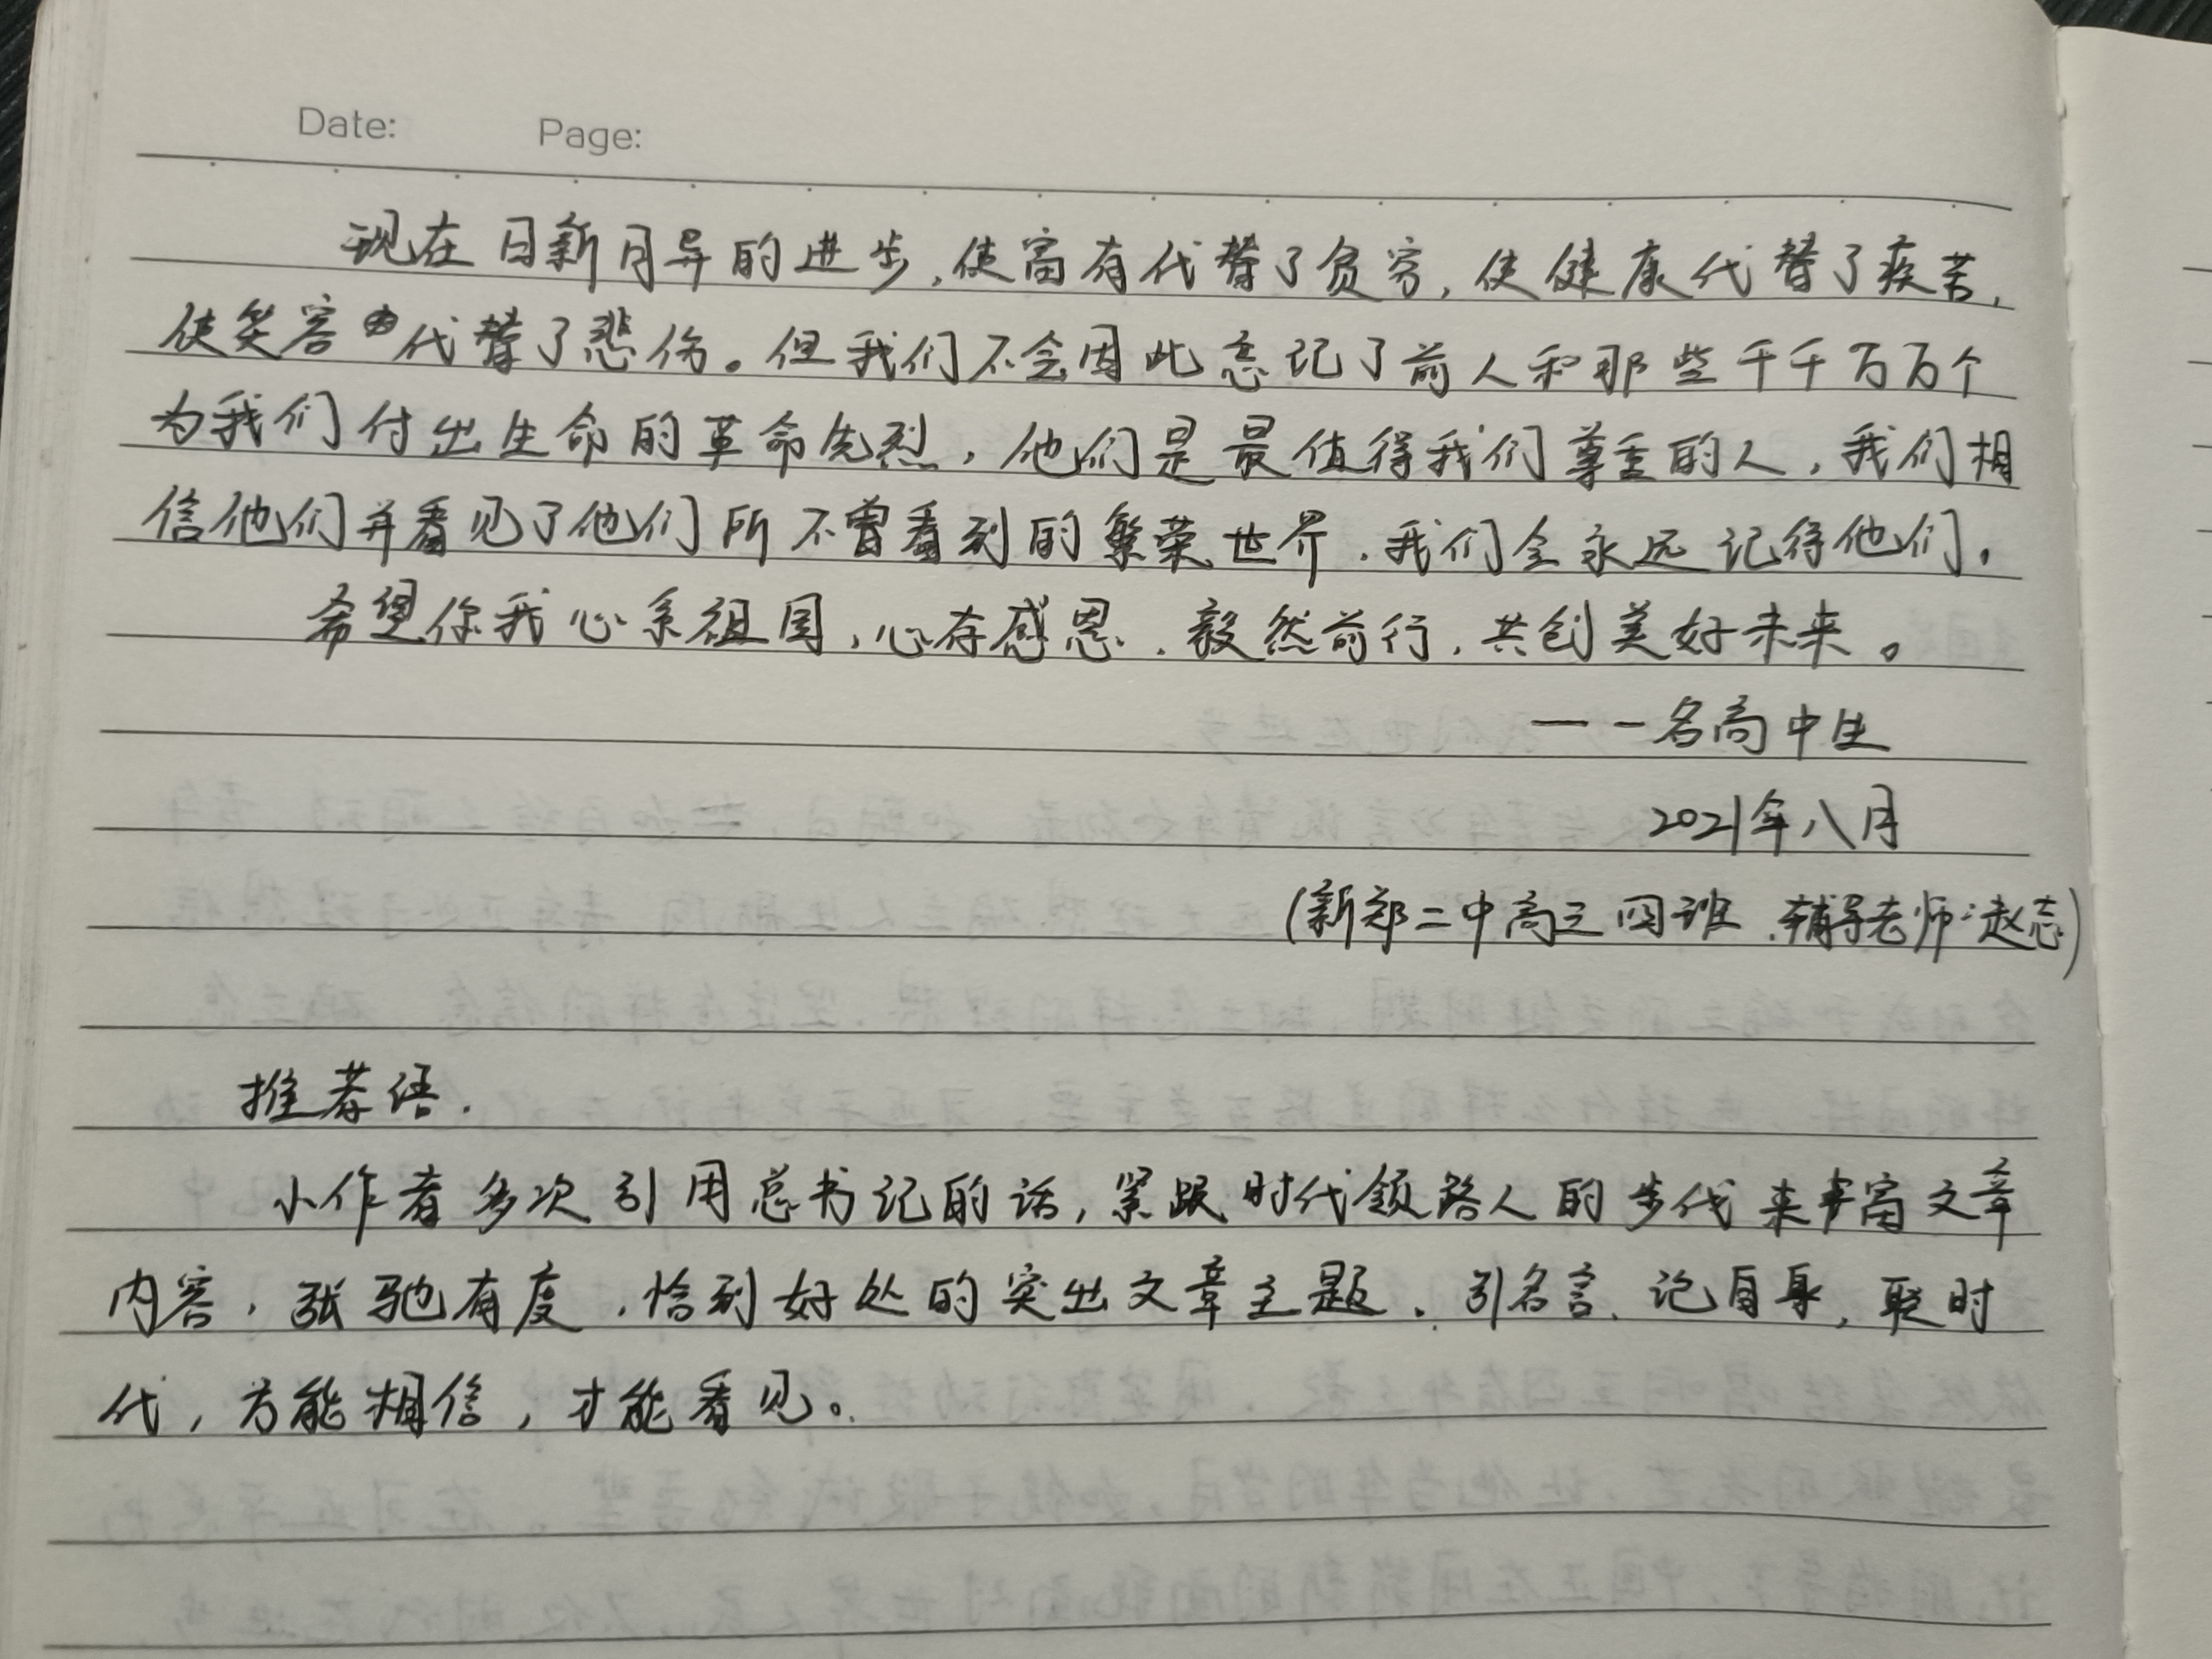 Date: Page:
现在日新月异的进步,使富有代替了贫穷,使健康代替了疾苦,
使笑容代替了悲伤。但我们不会因此忘记了前人和那些千千万万个
为我们付出生命的革命先烈,他们是最值得我们尊重的人,我们相
信他们并看见了他们所不曾看到的繁荣世界,我们会永远记得他们。
希望你我心系祖国,心存感恩,毅然前行,共创美好未来。
— 一名高中生
2021年八月
(新郑二中高三四班 辅导老师:赵志)
推荐语.
小作者多次引用总书记的话,紧跟时代领路人的步伐来丰富文章
内容,张驰有度,恰到好处的突出文章主题。引名言、论自身,联时
代,方能相信,才能看见。